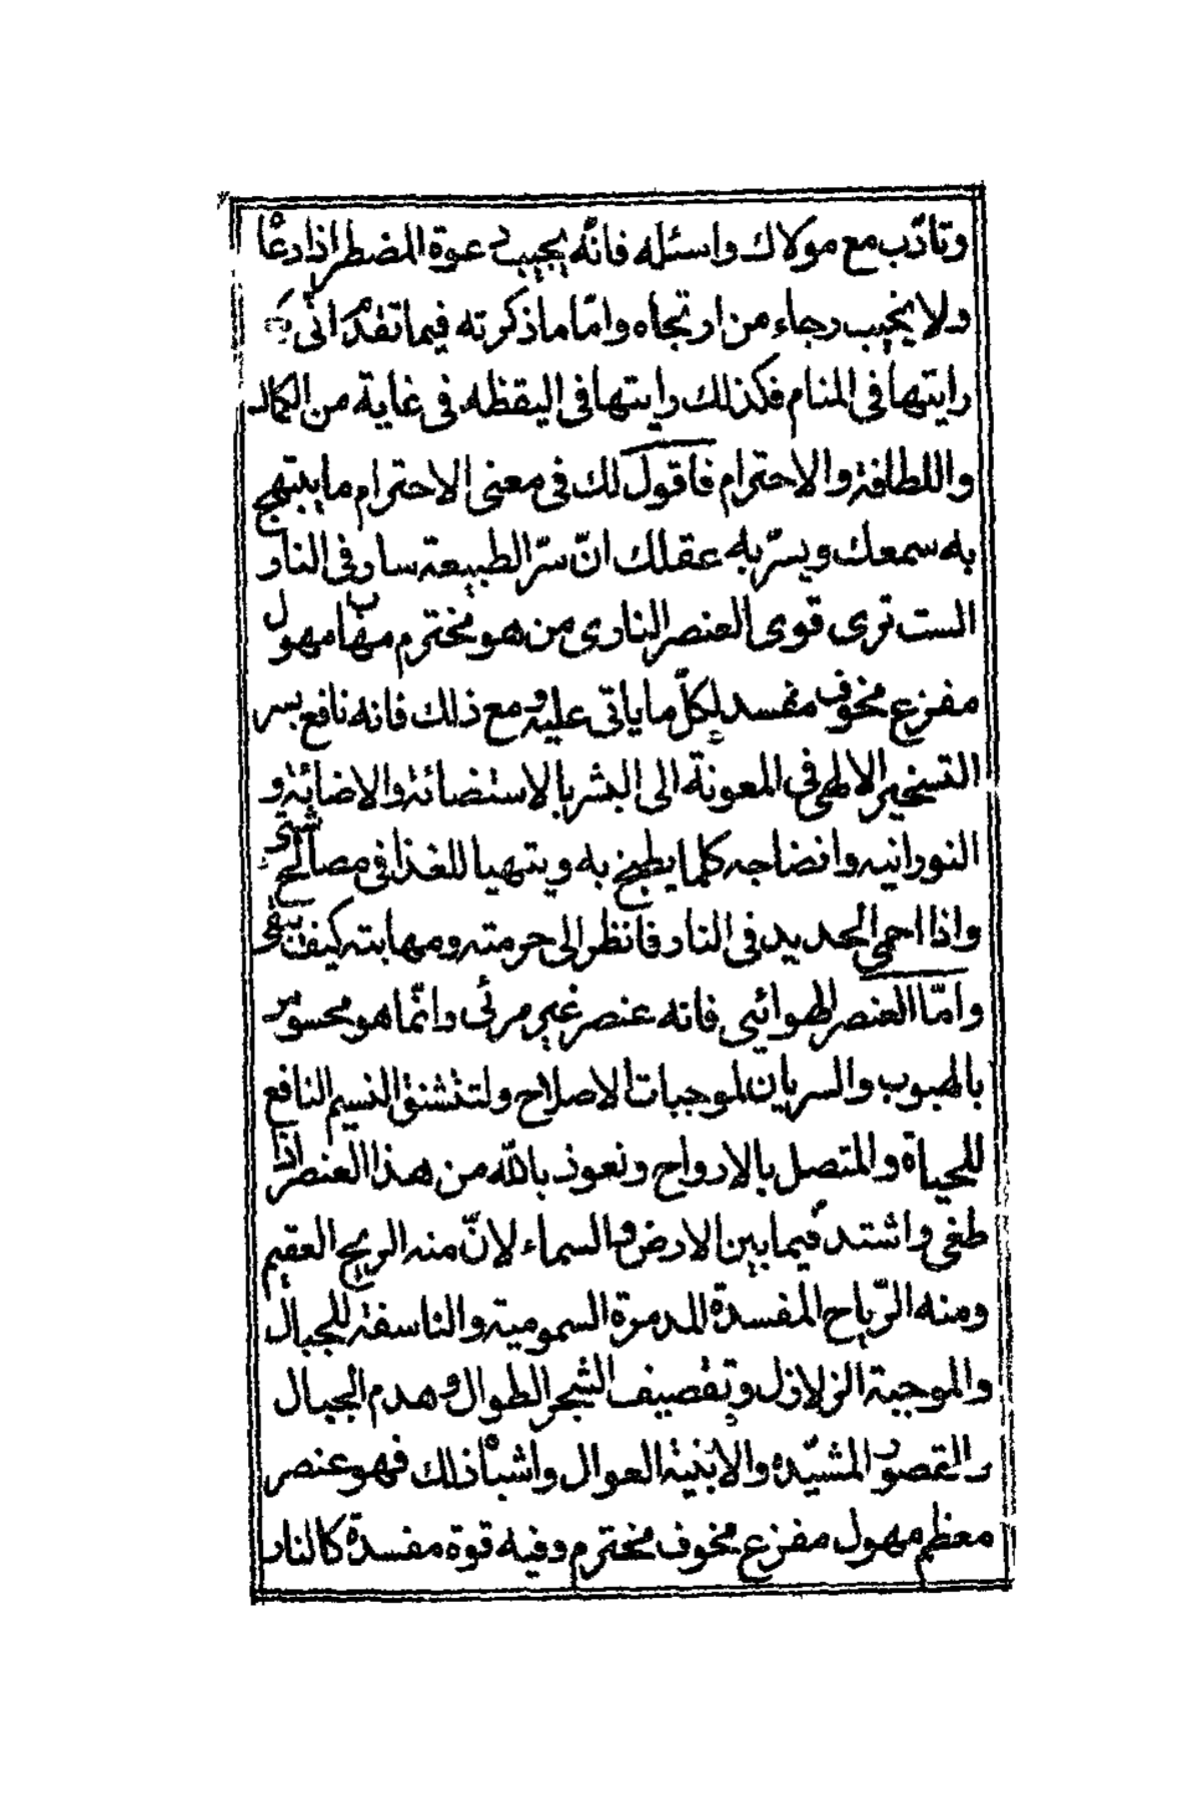 وتادّب مع مولاك واسئله فانّه يجيب دعوة المضطر اذا دعاْ
ولا يخيب رجاء من ارتجاه وامّا ماذكرته فيما تقدّم انّى
رايتها فى المنام فكذلك رايتها فى اليقظه فى غاية من الكمال
واللطافة والاحترام فاقول لك فى معنى الاحترام ما يبتهج
به سمعك ويسرّ به عقلك انّ سرّ الطبيعة سار فى النار
الست ترى قوى العنصر النارى من هو محترم مهاب مهول
مفزع مخوف مفسد لكلّ ما ياتى عليه ومع ذلك فانه نافع بسر
التسخير الالهى فى المعونة الى البشر بالاستضائة والاضائة و
النورانيه وانضاجه كلما يطبخ به ويتهيا للغذا فى مصالح شتى
واذا احمى الحديد فى النار فانظر الى حرمته ومهابته كيف
وامّا العنصر الهوائى فانه عنصر غير مرئى وانّما هو محسوس
بالهبوب والسريان لموجبات الاصلاح ولتنشق النسيم النافع
للحياة والمتصل بالارواح ونعوذ بالله من هذا العنصر اذا
طغى واشتد فيما بين الارض والسماء لانّ منه الريح العقيم
ومنه الرّياح المفسدة المدمرة السمومية والناسفة للجبال
والموجبة الزلازل وتقصيف الشجر الطوال وهدم الجبال
والقصور المشيّده والابنية العوال واشباْ ذلك فهو عنصر
معظم مهول مفزع مخوف محترم وفيه قوة مفسدة كالنار